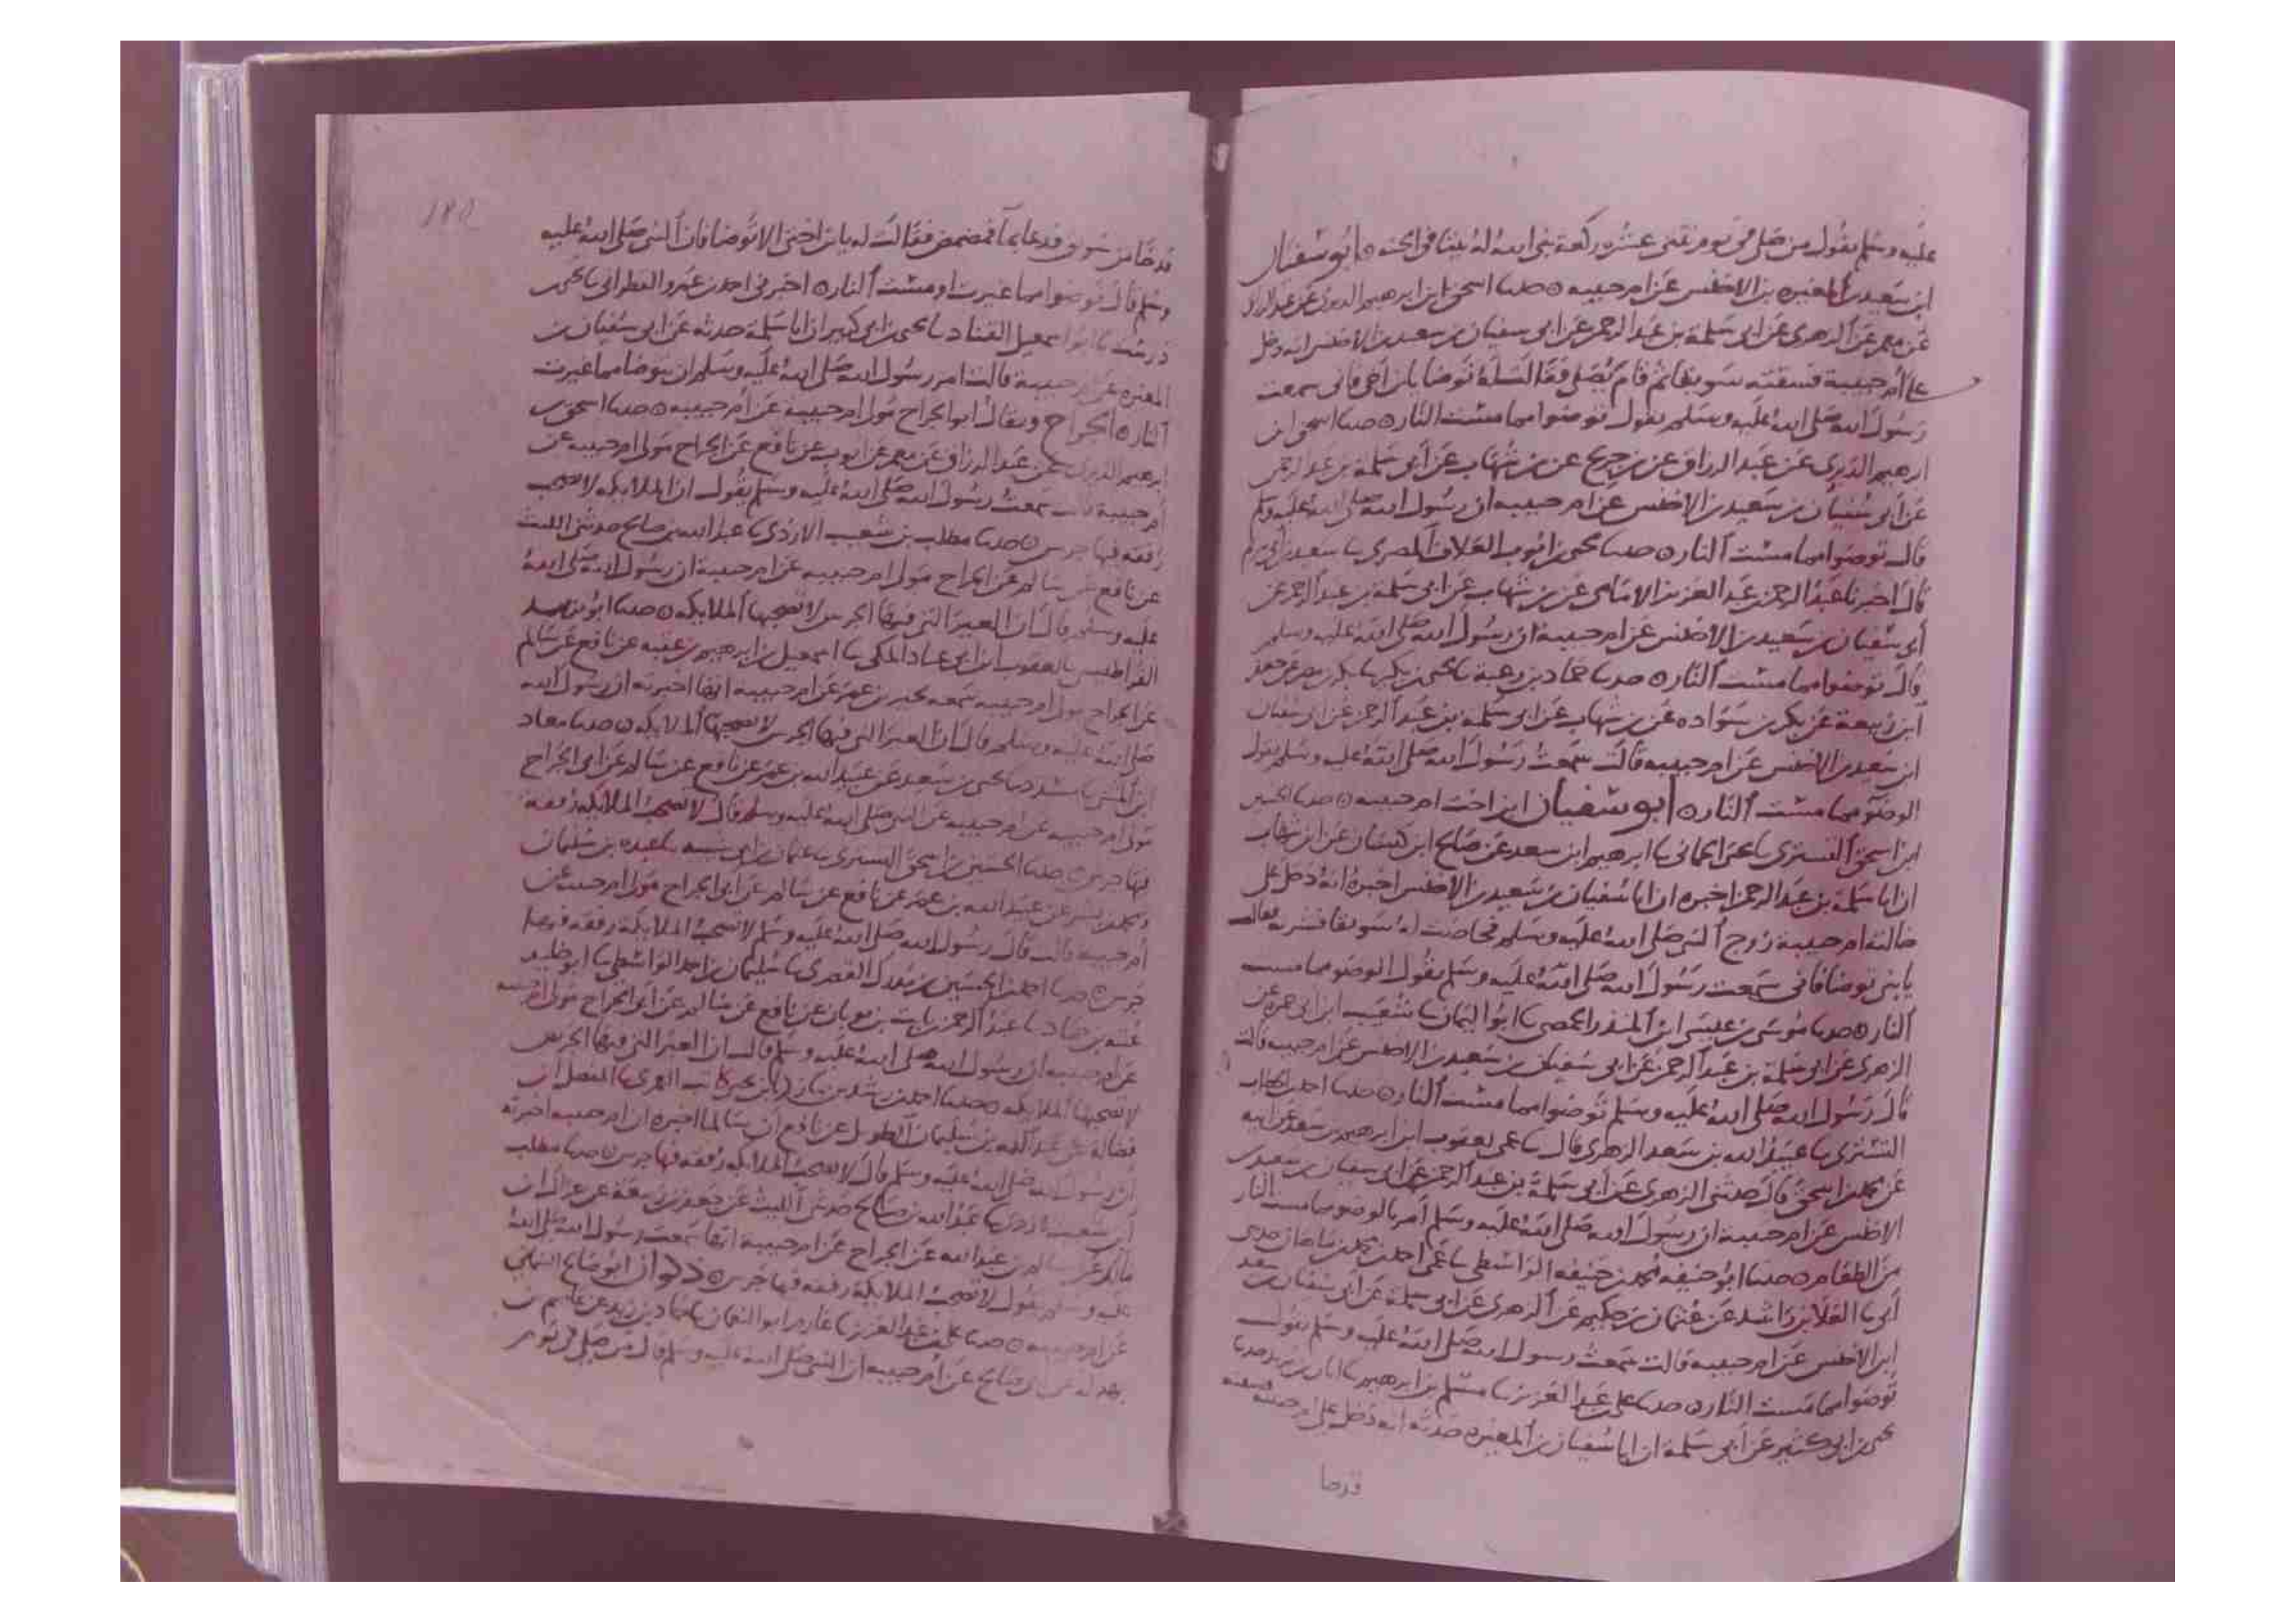 عليه وسلم يقول من صلى في يوم ثنتي عشره ركعة بنى الله له بيتا في الجنه ٥ ابو سفيان
ابن سعيد بن المغيره بن الاخنس عن ام حبيبه ٥ حدثنا اسحق بن ابرهيم الدبري عن عبد الرزاق
عن معمر عن الزهري عن ابي سلمة بن عبد الرحمن عن ابي سفيان بن سعيد بن الاخنس انه دخل
على ام حبيبة فسقته سويقا ثم قام يصلي فقالت له توضا يابن اخي فاني سمعت
رسول الله صلى الله عليه وسلم يقول توضوا مما مست النار ٥ حدثنا اسحق ابن
ابرهيم الدبري عن عبد الرزاق عن بن جريج عن بن شهاب عن ابي سلمة بن عبد الرحمن
عن ابي سفيان بن سعيد بن الاخنس عن ام حبيبه ان رسول الله صلى الله عليه وسلم
قال توضوا مما مست النار ٥ حدثنا يحيى بن ايوب العلاف المصري نا سعيد بن ابي مريم
قال اخبرنا عبد الرحمن بن عبد العزيز الامامي عن بن شهاب عن ابي سلمة بن عبد الرحمن عن
ابي سفيان بن سعيد بن الاخنس عن ام حبيبة ان رسول الله صلى الله عليه وسلم
قال توضوا مما مست النار ٥ حدثنا حماد بن زغبة نا يحيى بن بكير نا بكر بن مضر عن جعفر
ابن ربيعة عن بكر بن سواده عن بن شهاب عن ابي سلمة بن عبد الرحمن عن ابي سفيان
ابن سعيد بن الاخنس عن ام حبيبه قالت سمعت رسول الله صلى الله عليه وسلم يقول
الوضو مما مست النار ٥ ابو سفيان ابن اخت ام حبيبه ٥ حدثنا الحسين
ابن اسحق التستري نا يحيى الحماني نا ابرهيم ابن سعد عن صالح ابن كيسان عن ابن شهاب
ان ابا سلمة بن عبد الرحمن اخبره ان ابا سفيان بن سعيد بن الاخنس اخبره انه دخل على
خالته ام حبيبة زوج النبي صلى الله عليه وسلم فخاضت له سويقا فشربه فقالت
يا بني توضا فاني سمعت رسول الله صلى الله عليه وسلم يقول الوضو مما مست
النار ٥ حدثنا موسى بن عيسى ابن المنذر الحمصي نا ابو اليمان نا شعيب ابن ابي حمزه عن
الزهري عن ابي سلمة بن عبد الرحمن عن ابي سفيان بن سعيد بن الاخنس عن ام حبيبه قالت
قال رسول الله صلى الله عليه وسلم توضوا مما مست النار ٥ حدثنا احمد بن
التستري نا عبيد الله بن سعد الزهري قال نا عمي يعقوب ابن ابرهيم بن سعد عن ابيه
عن محمد بن اسحق قال حدثني الزهري عن ابي سلمة بن عبد الرحمن عن ابي سفيان بن سعيد بن
الاخنس عن ام حبيبة ان رسول الله صلى الله عليه وسلم امر بالوضو مما مست النار
من الطعام ٥ حدثنا ابو حنيفه محمد بن حنيفه الواسطي نا عمي احمد بن محمد بن ماهان حدثني
ابي نا العلا بن راشد عن عثمان بن حكيم عن الزهري عن ابي سلمة عن ابي سفيان بن سعيد
ابن الاخنس عن ام حبيبه قالت سمعت رسول الله صلى الله عليه وسلم يقول
توضوا مما مست النار ٥ حدثنا علي بن عبد العزيز نا مسلم بن ابرهيم نا ابان بن يزيد حدثنا
يحيى بن ابي كثير عن ابي سلمة ان ابا سفيان بن المغيره حدثه انه دخل على ام حبيبه فسقته
قدحا
قدحا من سويق فدعا بما فمضمض فقالت له يابن اختي الا توضا فان النبي صلى الله عليه
وسلم قال توضوا مما غيرت او مست النار ٥ اخبرني احمد بن عمرو القطراني نا يحيى بن
درست نا ابو اسمعيل القناد نا يحيى بن ابي كثير ان ابا سلمة حدثه عن ابي سفيان بن
المغيره عن ام حبيبة قالت امر رسول الله صلى الله عليه وسلم ان يتوضا مما غيرت
النار ٥ الجراح ويقال ابو الجراح مولى ام حبيبة عن ام حبيبه ٥ حدثنا اسحق بن
ابرهيم الدبري عن عبد الرزاق عن معمر عن ايوب عن نافع عن الجراح مولى ام حبيبه عن
ام حبيبة قالت سمعت رسول الله صلى الله عليه وسلم يقول ان الملايكه لا تصحب
رفقه فيها جرس ٥ حدثنا مطلب بن شعيب الازدي نا عبد الله بن صالح حدثني الليث
عن نافع عن سالم عن الجراح مولى ام حبيبه عن ام حبيبة ان رسول الله صلى الله
عليه وسلم قال ان العير التي فيها الجرس لا تصحبها الملايكه ٥ حدثنا ابو يزيد
القراطيسي نا يعقوب ابن ابي عباد المكي نا اسمعيل بن ابرهيم بن عقبه عن نافع عن سالم
عن الجراح مولى ام حبيبه سمعه يخبر بن عمر عن ام حبيبه انها اخبرته ان رسول الله
صلى الله عليه وسلم قال ان العير التي فيها الجرس لا تصحبها الملايكه ٥ حدثنا معاذ
ابن المثنى نا مسدد نا يحيى بن سعيد عن عبيد الله بن عمر عن نافع عن سالم عن ابي الجراح
مولى ام حبيبه عن ام حبيبه عن النبي صلى الله عليه وسلم قال لا تصحب الملايكه رفقه
فيها جرس ٥ حدثنا الحسين بن اسحق التستري نا عثمان بن ابي شيبه نا عبده بن سليمان
ومحمد بن بشر عن عبيد الله بن عمر عن نافع عن سالم عن ابي الجراح مولى ام حبيبه عن
ام حبيبه قالت قال رسول الله صلى الله عليه وسلم لا تصحب الملايكة رفقه فيها
جرس ٥ حدثنا احمد بن الحسين بن مدرك القصري نا سليمان بن احمد الواسطي نا ابو خليد
عتبه بن حماد نا عبد الرحمن بن ثابت بن ثوبان عن نافع عن سالم عن ابي الجراح مولى ام حبيبه
عن ام حبيبه ان رسول الله صلى الله عليه وسلم قال ان العير التي فيها الجرس
لا تصحبها الملايكه ٥ حدثنا احمد بن رشدين نا زكريا بن يحيى كاتب العمري نا المفضل ابن
فضالة عن عبد الله بن سليمان الطويل عن نافع ان سالما اخبره ان ام حبيبه اخبرته
ان رسول الله صلى الله عليه وسلم قال لا تصحب الملايكه رفقه فيها جرس ٥ حدثنا مطلب
ابن شعيب الازدي نا عبد الله بن صالح حدثني الليث عن جعفر بن ربيعة عن عراك ابن
مالك عن سالم بن عبد الله عن الجراح عن ام حبيبة انها سمعت رسول الله صلى الله
عليه وسلم يقول لا تصحب الملايكة رفقه فيها جرس ٥ ذكوان ابو صالح السمان
عن ام حبيبه ٥ حدثنا علي بن عبد العزيز نا عارم ابو النعمان نا حماد بن زيد عن عاصم بن
بهدله عن ابي صالح عن ام حبيبه ان النبي صلى الله عليه وسلم قال من صلى في يوم